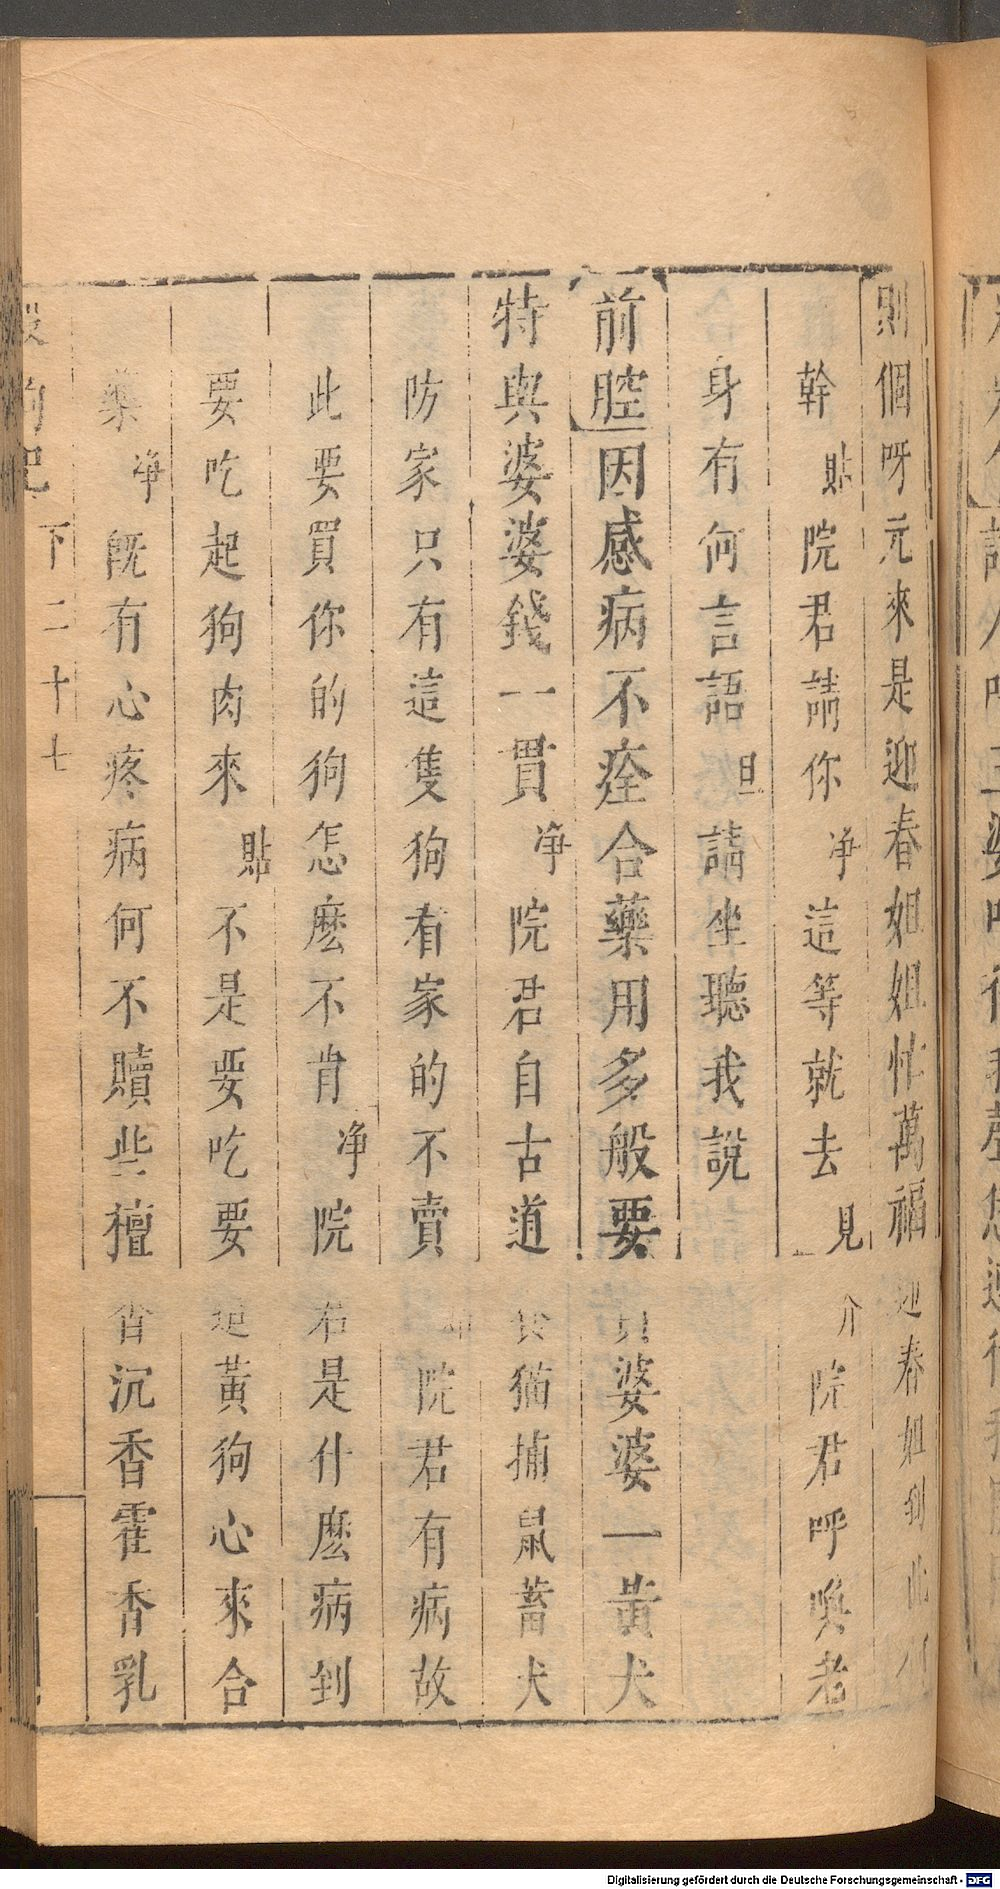 則個呀元來是迎春姐姐忙萬福迎春姐到此何
幹貼院君請你净這等就去見介院君呼喚老
身有何言語旦請坐聽我說
前腔因感病不痊合藥用多般要買婆婆一黃犬
特與婆婆錢一貫净院君自古道養猫捕鼠蓄犬
防家只有這隻狗看家的不賣旦院君有病故
此要買你的狗怎麽不肯净院君是什麽病到
要吃起狗肉來貼不是要吃要這黃狗心來合
藥净既有心疼病何不贖些檀香沉香霍香乳
殺狗記 下二十七
Digitalisierung gefördert durch die Deutsche Forschungsgemeinschaft - DFG